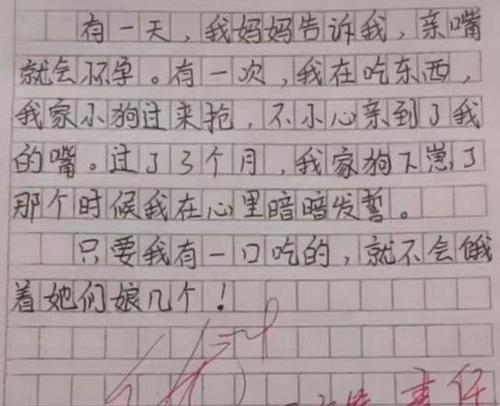 有一天，我妈妈告诉我，亲嘴
就会怀孕。有一次，我在吃东西，
我家小狗过来抢，不小心亲到了我
的嘴。过了3个月，我家狗下崽了
那个时候我在心里暗暗发誓。
只要我有一口吃的，就不会饿
着她们娘几个！
责任